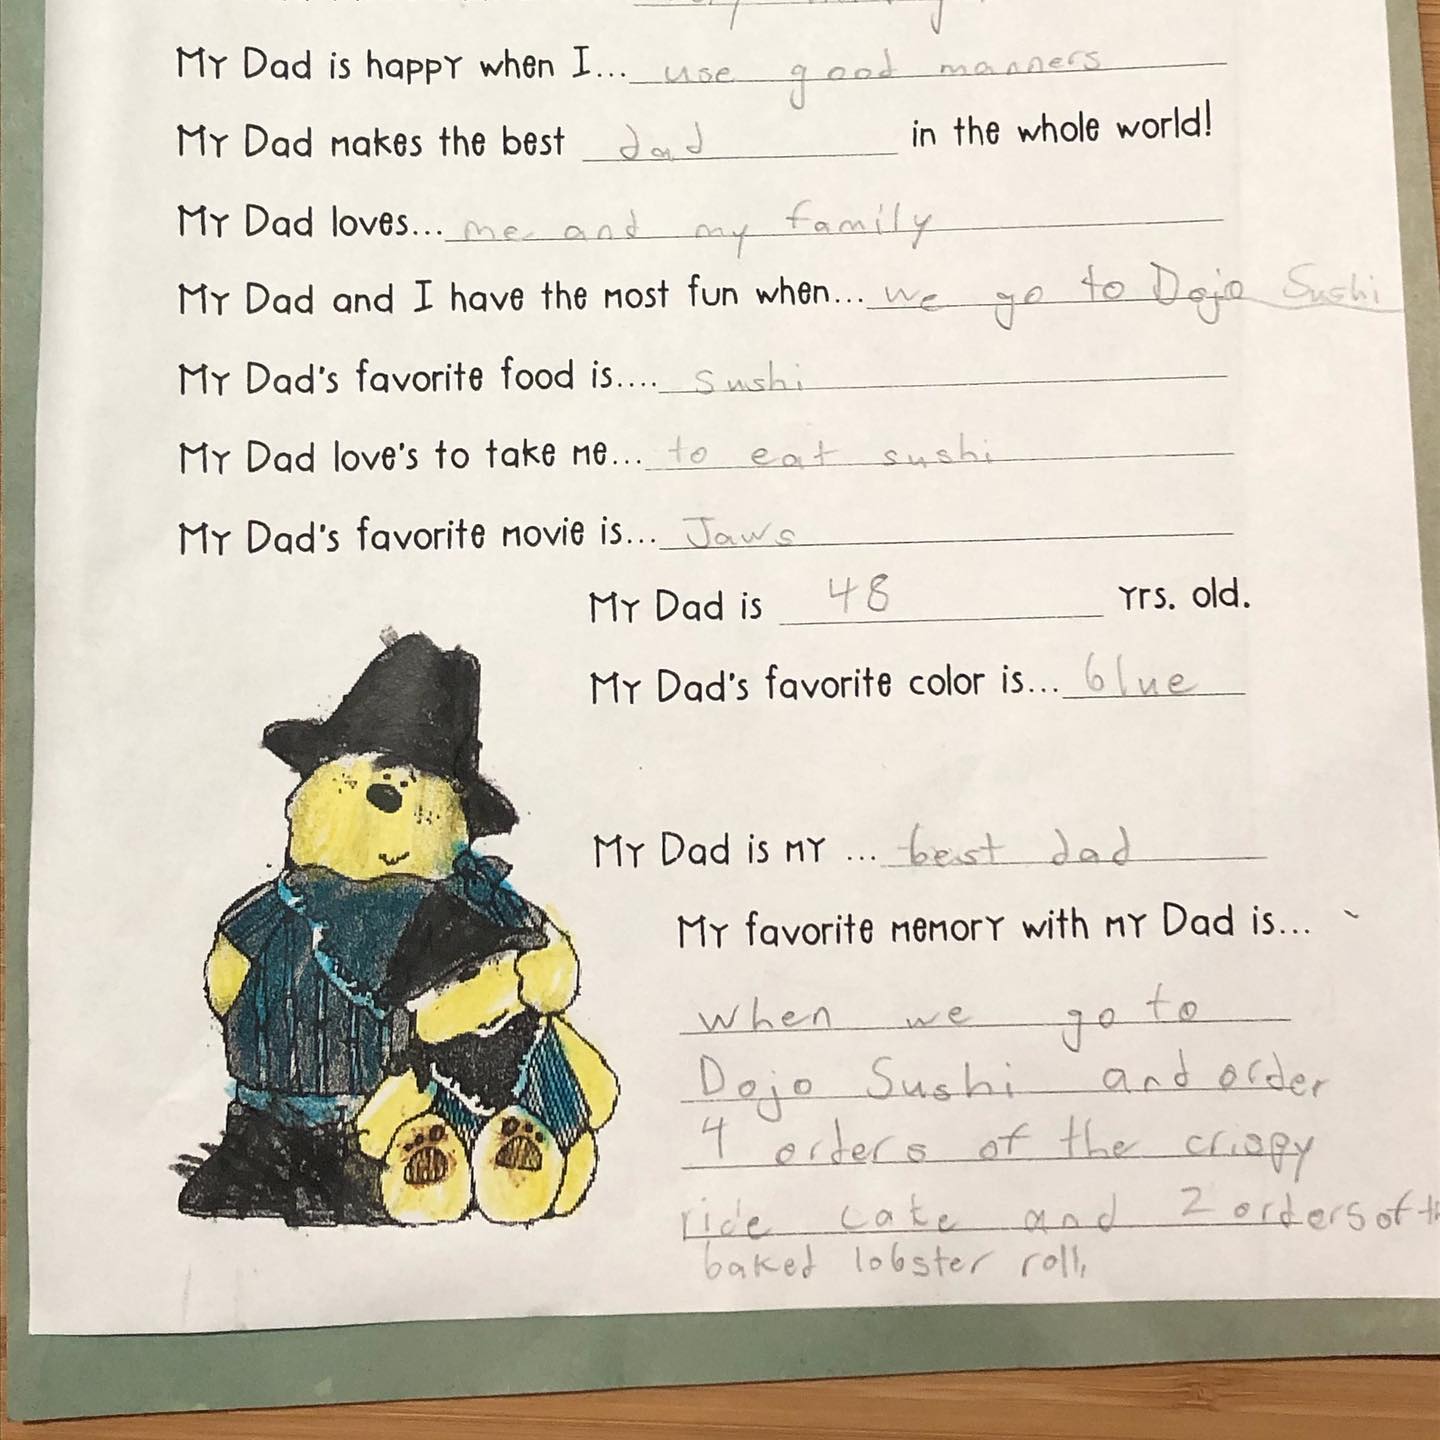 My Dad is happy when I... use good manners
My Dad makes the best dad in the whole world!
My Dad loves... me and my family
My Dad and I have the most fun when... we go to Dojo Sushi
My Dad's favorite food is.... sushi
My Dad love's to take me... to eat sushi
My Dad's favorite movie is... Jaws
My Dad is 48 yrs. old.
My Dad's favorite color is... blue
My Dad is my ... best dad
My favorite memory with my Dad is...
when we go to
Dojo Sushi and order
4 orders of the crispy
rice cake and 2 orders of
baked lobster roll.